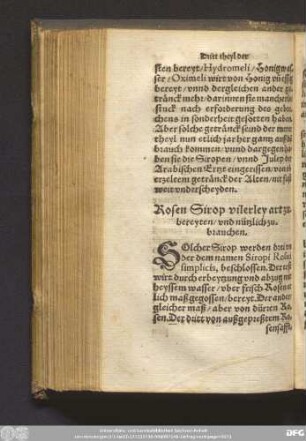 Dritt theyl der
sten bereyt/Hydromeli/Honigwas
ser/Oximeli wirt von Honig vñ essig
bereyt/vnnd dergleichen ander ge
tränck mehr/darinnen sie mancherley
stuck nach erforderung des gebre
chens in sonderheit gesotten haben.
Aber solche getränck seind der mehrer
theyl nun etlich jar her gantz auß dem
brauch kommen/vnnd dargegen ha
ben sie die Siropen/vnnd Julep der
Arabischen Ertzt eingerissen/von
erzeltem getränck der Alten/nit fast
weit vnderscheyden.
Rosen Sirop vilerley art zu
bereyten/vnd nützlich zu
brauchen.
SOlcher Sirop werden drey
der dem namen Siropi Rosati
simplicis, beschlossen. Der erst
wirt durch erbeytzung vnd abzug mit
heyssem wasser/vber frisch Rosen
lich maß gegossen/bereyt. Der ander
gleicher maß/aber von dürren Ro
sen. Der dritt von außgepreßtem Ro
sensafft,